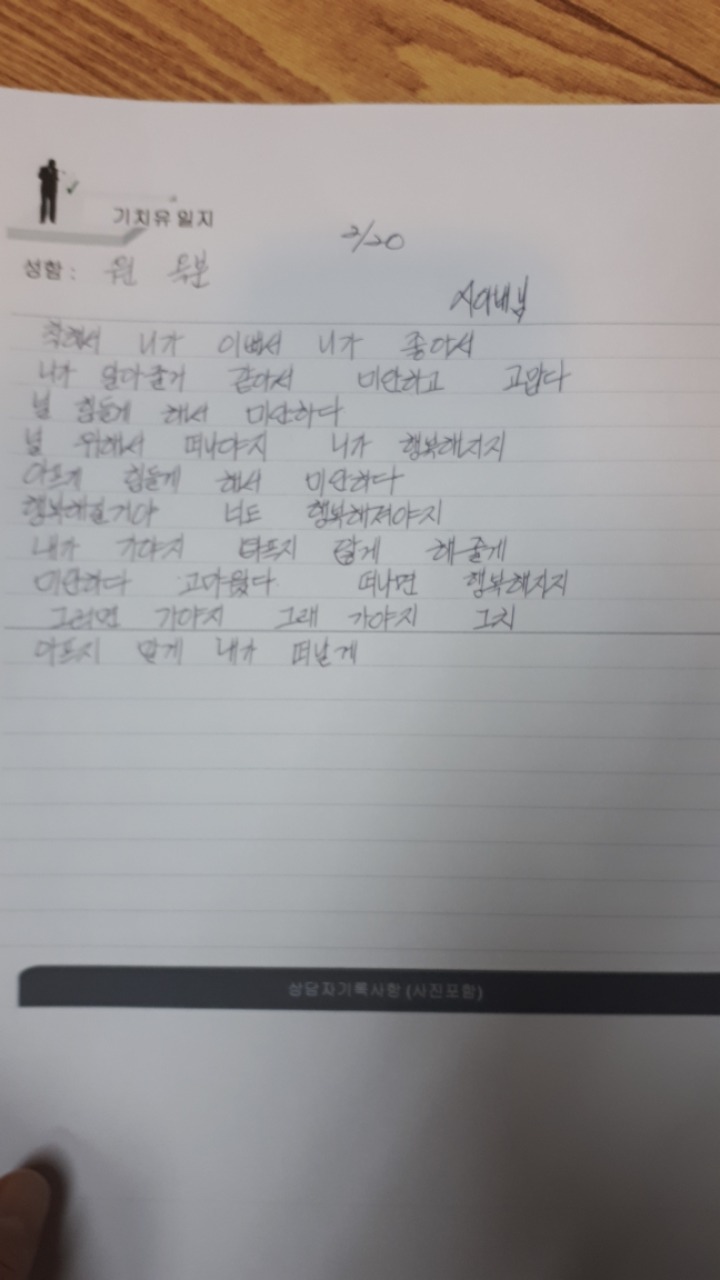 기치유 일지
2/20
성함 : 원 옥분
시어내님
착해서 니가 이뻐서 니가 좋아서
니가 알아줄거 같아서 미안하고 고맙다
널 힘들게 해서 미안하다
널 위해서 떠나야지 니가 행복해지지
아프게 힘들게 해서 미안하다
행복해질거야 너도 행복해져야지
내가 가야지 아프지 않게 해줄게
미안하다 고마웠다 떠나면 행복해지지
그러면 가야지 그래 가야지 그치
아프지 않게 내가 떠날게
상담자기록사항 (사진포함)